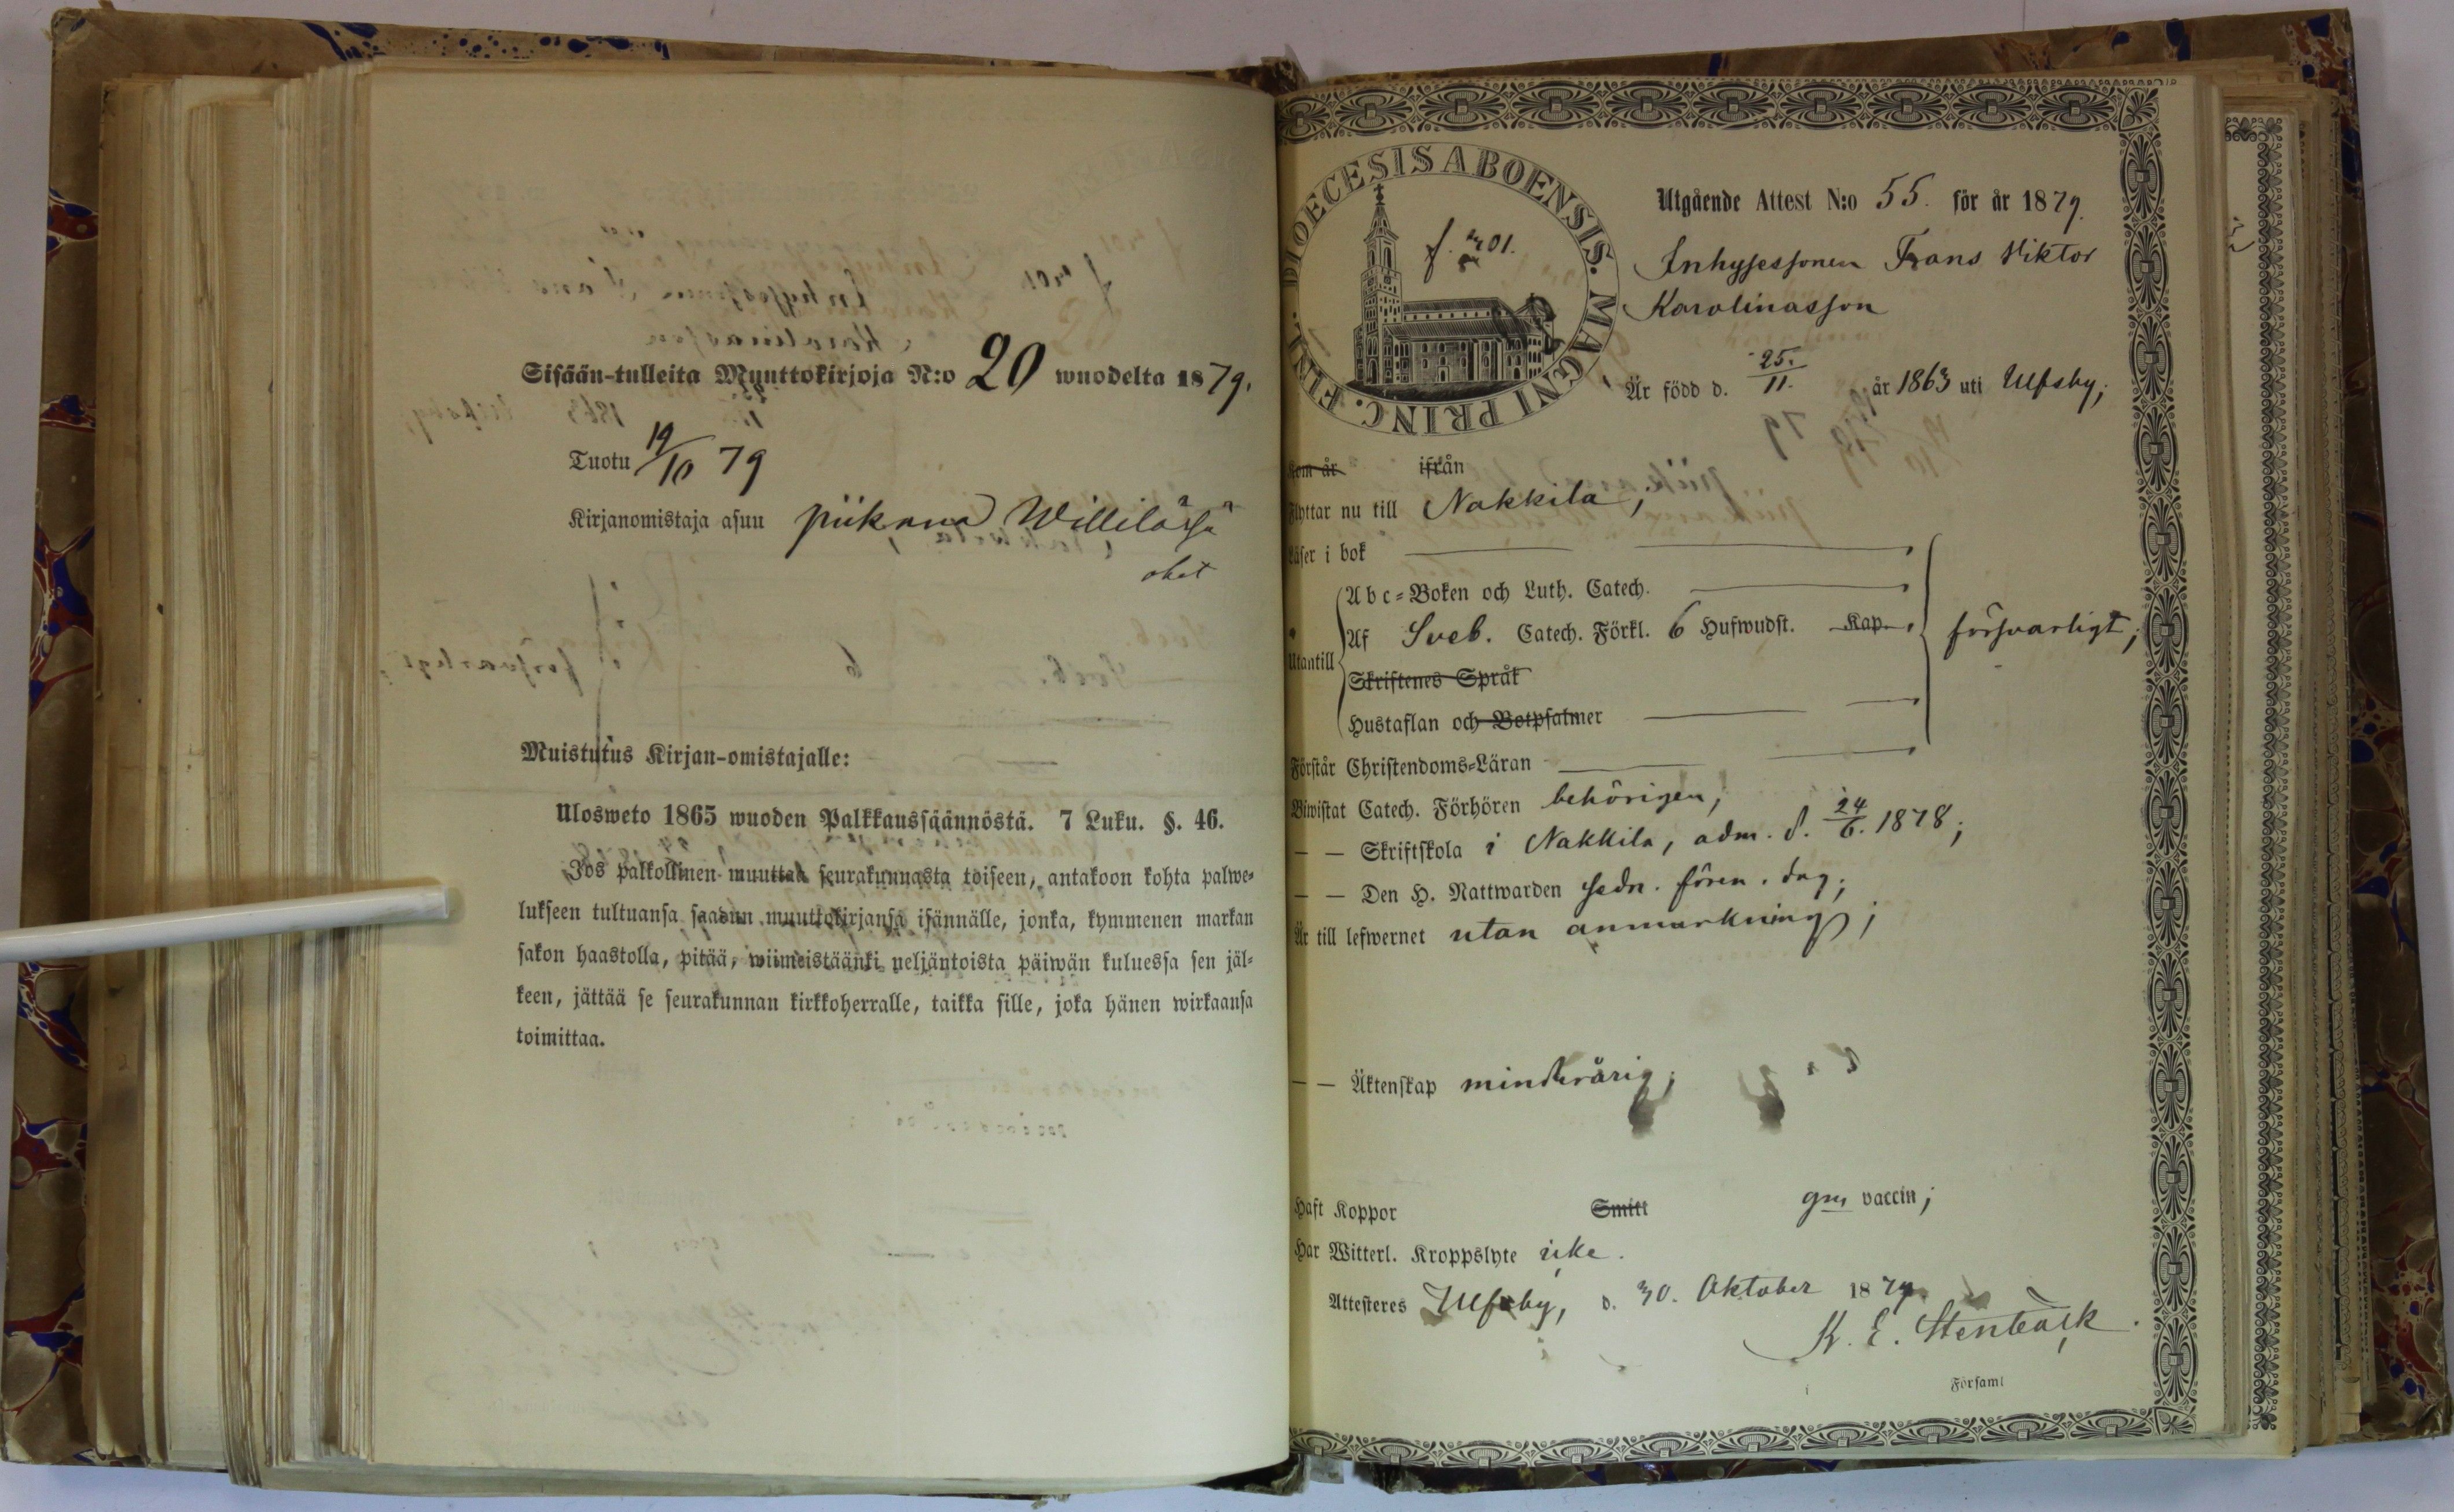 Sisään-tulleita Muuttokirjoja N:o 20 wuodelta 1879.
Tuotu 19/10 79
Kirjanomistaja asuu piikana Willilässä
Muistutus Kirjan-omistajalle:
Ulosweto 1865 wuoden Palkkaussäännöstä. 7 Luku. §. 46.
Jos palkollinen muuttaa seurakunnasta toiseen, antakoon kohta palwe-
lukseen tultuansa saadun muuttokirjansa isännälle, jonka, kymmenen markan
sakon haastolla, pitää, wiimeistäänki neljäntoista päiwän kuluessa sen jäl-
keen, jättää se seurakunnan kirkkoherralle, taikka sille, joka hänen wirkaansa
toimittaa.
DIOECESIS ABOENSIS. MAGNI PRINC. FINL.
f. 401.
Utgående Attest N:o 55. för år 1879.
Inhysessonen Frans Viktor
Karolinasson
Är född d. 25./11. år 1863 uti Ulfsby;
Kom år ifrån
Flyttar nu till Nakkila;
Läser i bok
Abc-Boken och Luth. Catech.
Utantill Af Sveb. Catech. Förkl. 6 Hufwudst. Kap. försvarligt;
Skriftenes Språk
Hustaflan och Botpsalmer
Förstår Christendoms-Läran
Biwistat Catech. Förhören behörigen;
— — Skriftskola i Nakkila, adm. d. 24/6. 1878;
— — Den H. Nattwarden sedn. fören. dag;
Är till lefwernet utan anmärkning;
— — Äktenskap minderårig;
Haft Koppor Smitt gm vaccin;
Har Witterl. Kroppslyte icke.
Attesteres Ulfsby, d. 30. Oktober 1879.
K. E. Stenbäck.
i Församl